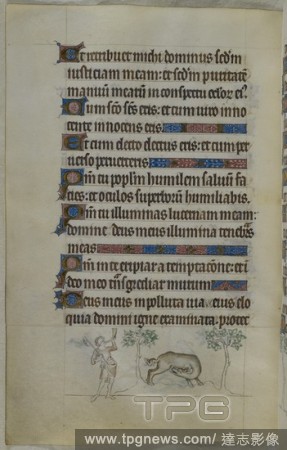 Et retribuet michi dominus sedm
iusticiam meam: et sedm puritatē
manuū mearū in conspectu ocloꝝ eiꝰ
Cum scō scs eris: et cum uiro inno
cente innocens eris
Et cum electo electus eris: et cum per
uerso peruerteris
Qm̄ tu popłm humilem saluū fa
cies: et oculos superboꝝ humiliabis
Qm̄ tu illuminas lucernam meam:
domine deus meus illumina tenebras
meas
Qm̄ in te eripiar a temptacōne: et ī
deo meo trāsgrediar murum
Deus meus īpolluta uia eius elo
quia domini igne examinata: protec
TPG
www.tpgnews.com/ 達志影像